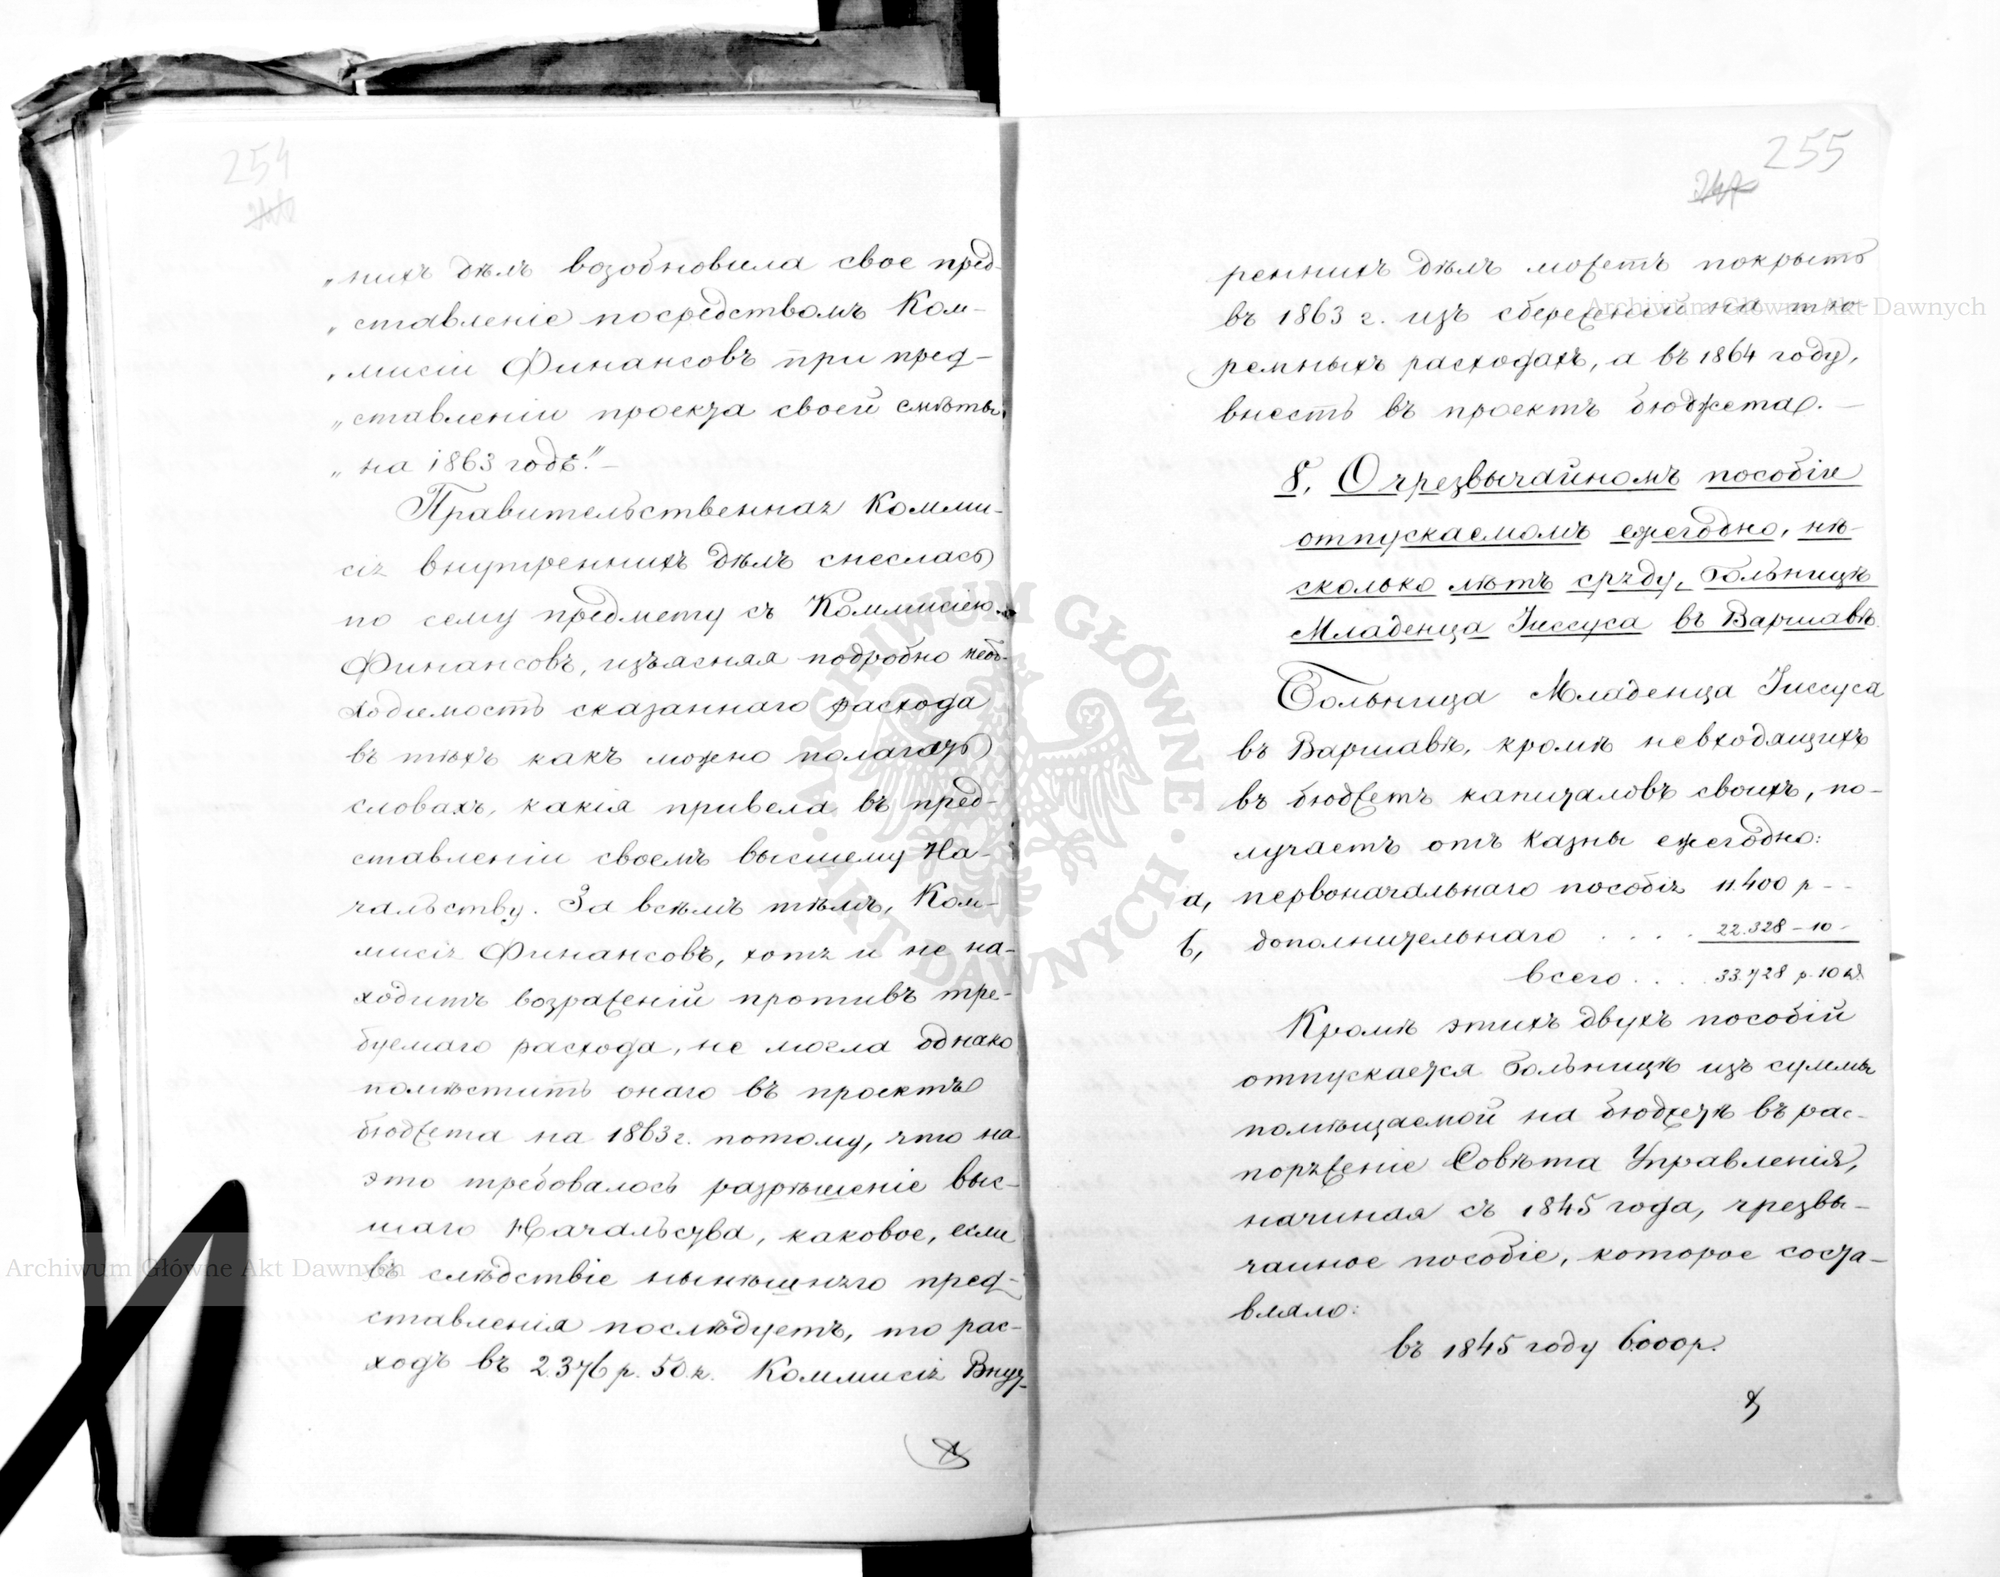 254
„нихъ дѣлъ возобновила свое пред-
„ставленіе посредствомъ Ком-
„мисіи Финансовъ при пред-
„ставленіи проекта своей смѣты
„на 1863 годъ."—
Правительственная Комми-
сія Внутреннихъ дѣлъ снеслась
по сему предмету съ Коммисіею
Финансовъ, изъясняя подробно необ-
ходимость сказаннаго расхода
въ тѣхъ какъ можно полагать
словахъ, какія привела въ пред-
ставленіи своемъ высшему На-
чальству. За всѣмъ тѣмъ, Ком-
мисія Финансовъ, хотя и не на-
ходитъ возраженій противъ тре-
буемаго расхода, не могла однако
помѣстить онаго въ проектѣ
бюджета на 1863 г. потому, что на
это требовалось разрѣшеніе выс-
шаго Начальства, каковое, если
въ слѣдствіе нынѣшняго пред-
ставленія послѣдуетъ, то рас-
ходъ въ 2.376 р. 50 к. Коммисія Внут-
255
реннихъ дѣлъ можетъ покрыть
въ 1863 г. изъ сбереженій на тю-
ремныхъ расходахъ, а въ 1864 году,
внесть въ проектъ бюджета. —
8, О чрезвычайномъ пособіе
отпускаемомъ ежегодно, нѣ-
сколько лѣтъ сряду, Больницѣ
Младенца Іиссуса въ Варшавѣ.
Больница Младенца Іиссуса
въ Варшавѣ, кромѣ невходящихъ
въ бюджетъ капиталовъ своихъ, по-
лучаетъ отъ казны ежегодно:
а, первоначальнаго пособія 11.400 р - -
б, дополнительнаго . . . . 22.328 – 10 -
всего . . . . 33.728 р. 10 к.
Кромѣ этихъ двухъ пособій
отпускается Больницѣ изъ суммы
помѣщаемой на бюджетѣ въ рас-
поряженіе Совѣта Управленія,
начиная съ 1845 года, чрезвы-
чайное пособіе, которое соста-
вляло:
въ 1845 году 6.000 р.
Archiwum Główne Akt Dawnych
Archiwum Główne Akt Dawnych
ARCHIWUM GŁÓWNE · AKT DAWNYCH ·